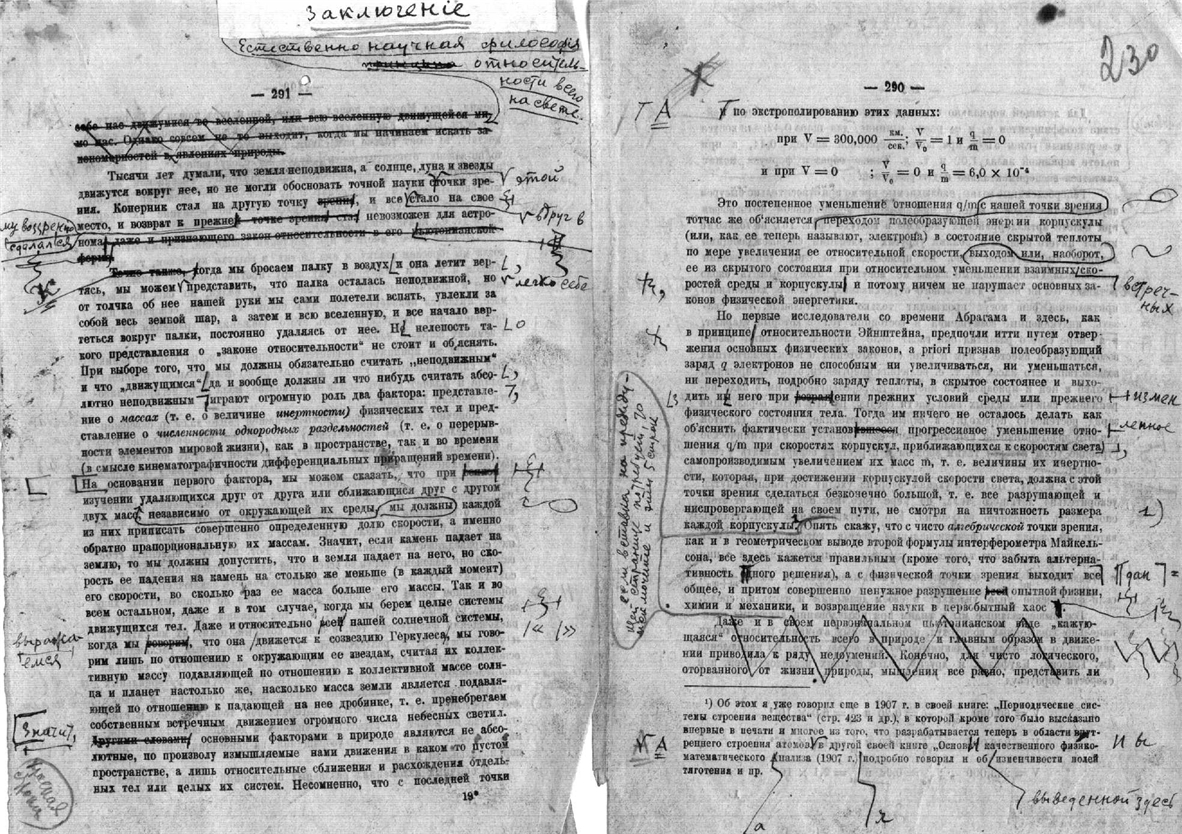 Заключеніе
Естественно научная философія
относитель-
ности всего
на свете.
— 291 —
себе нас движущимся по вселенной, или всю вселенную движущейся ми-
мо нас. Однако совсем не то выходит, когда мы начинаем искать за-
кономерностей в явлениях природы.
Тысячи лет думали, что земля неподвижна, а солнце, луна и звезды
движутся вокруг нее, но не могли обосновать точной науки с точки зре-
этой
ния. Коперник стал на другую точку зрения, и все стало на свое
вдруг в
место, и возврат к прежне точке зрения стал невозможен для астро-
му воззрению
сделался
нома даже и признающего закон относительности в его ньютонианской
форме
Точно также, когда мы бросаем палку в воздух и она летит вер-
тясь, мы можем представить, что палка осталась неподвижной, но
легко себе
от толчка об нее нашей руки мы сами полетели вспять, увлекли за
собой весь земной шар, а затем и всю вселенную, и все начало вер-
теться вокруг палки, постоянно удаляясь от нее. Но нелепость та-
кого представления о „законе относительности" не стоит и об'яснять.
При выборе того, что мы должны обязательно считать „неподвижным"
и что „движущимся" да и вообще должны ли что нибудь считать абсо-
лютно неподвижным играют огромную роль два фактора: представле-
ние о массах (т. е. о величине инертности) физических тел и пред-
ставление о численности однородных раздельностей (т. е. о перерыв-
ности элементов мировой жизни), как в пространстве, так и во времени
(в смысле кинематографичности дифференциальных приращений времени).
На основании первого фактора, мы можем сказать, что при
изучении удаляющихся друг от друга или сближающихся друг с другом
двух масс независимо от окружающей их среды, мы должны каждой
из них приписать совершенно определенную долю скорости, а именно
обратно прапорциональную их массам. Значит, если камень падает на
землю, то мы должны допустить, что и земля падает на него, но ско-
рость ее падения на камень на столько же меньше (в каждый момент)
его скорости, во сколько раз ее масса больше его массы. Так и во
всем остальном, даже и в том случае, когда мы берем целые системы
движущих тел. Даже и относительно всей нашей солнечной системы,
когда мы говорим, что она движется к созвездию Геркулеса, мы гово-
выража-
емся,
рим лишь по отношению к окружающим ее звездам, считая их коллек-
тивную массу подавляющей по отношению к коллективной массе солн-
ца и планет настолько же, насколько масса земли является подавля-
ющей по отношению к падающей на нее дробинке, т. е. пренебрегаем
собственным встречным движением огромного числа небесных светил.
Значит,
Другими словами, основными факторами в природе являются не абсо-
лютные, но произволу измышляемые нами движения в каком то пустом
пространстве, а лишь относительные сближения и расхождения отдель-
ных тел или целых их систем. Несомненно, что с последней точки
19*
230
— 290 —
по экстрополированию этих данных:
при V = 300,000 км./сек.; V/V₀ = 1 и q/m = 0
и при V = 0 ; V/V₀ = 0 и q/m = 6,0 × 10⁻⁴
Это постепенное уменьшение отношения q/m с нашей точки зрения
тотчас же об'ясняется переходом полеобразующей энергии корпускулы
(или, как ее теперь называют, электрона) в состояние скрытой теплоты
по мере увеличения ее относительной скорости, выходом или, наоборот,
ее из скрытого состояния при относительном уменьшении взаимных ско-
встреч-
ных
ростей среды и корпускулы и потому ничем не нарушает основных за-
конов физической энергетики.
Но первые исследователи со времени Абрагама и здесь, как
в принципе относительности Эйнштейна, предпочли итти путем отвер-
жения основных физических законов, a priori признав полеобразующий
заряд q электронов не способным ни увеличиваться, ни уменьшаться,
ни переходить, подробно заряду теплоты, в скрытое состоянее и выхо-
дить из него при возращении прежних условий среды или прежнего
измен
физического состояния тела. Тогда им ничего не осталось делать как
об'яснить фактически прогрессивное уменьшение отно-
ленное
шения q/m при скоростях корпускул, приближающихся к скоростям света
самопроизвольным увеличением их масс m, т. е. величины их инертно-
сти, которая, при достижении корпускулой скорости света, должна с этой
точки зрения сделаться безконечно большой, т. е. все разрушающей и
ниспровергающей на своем пути, не смотря на ничтожность размера
каждой корпускулы. Опять скажу, что с чисто алгебрической точки зрения,
1)
как и в геометрическом выводе второй формулы интерферометра Майкель-
сона, все здесь кажется правильным (кроме того, что забыта альтерна-
тивность одного решения), а с физической точки зрения выходит все
дан
общее, и притом совершенно ненужное разрушение всей опытной физики,
химии и механики, и возвращение науки в первобытный хаос
Даже и в своем первоначальном ньютонианском виде „кажу-
щаяся" относительность всего в природе и главным образом в движе-
нии приводила к ряду недоумений. Конечно, для чисто логического,
оторванного от жизни природы, мышления все равно, представить ли
¹) Об этом я уже говорил еще в 1907 г. в своей книге: „Периодические сис-
темы строения вещества" (стр. 423 и др.), в которой кроме того было высказано
впервые в печати и многое из того, что разрабатывается теперь в области внут-
реннего строения атомов. В другой своей книге „Основы качественного физико-
математического Анализа (1907 г.) подробно говорил и об изменчивости волей
тяготения и пр.
выведенной здесь